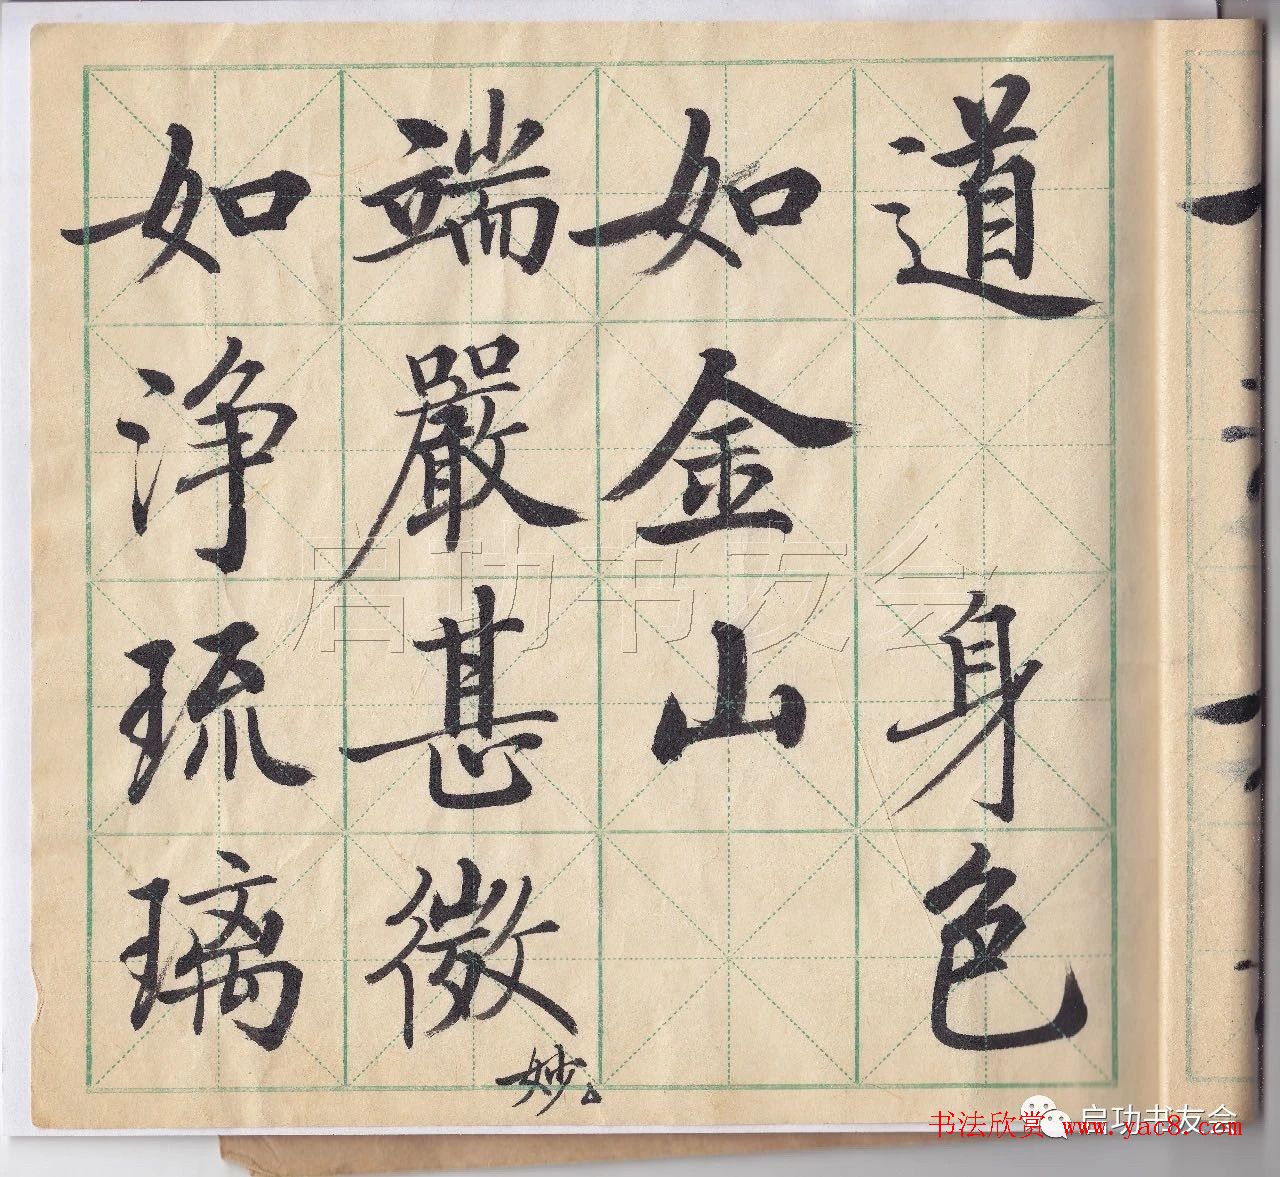 道 身色
如金山
端嚴甚微妙
如浄琉璃
启功书友会
启功书友会
书法欣赏 www.yac8.com